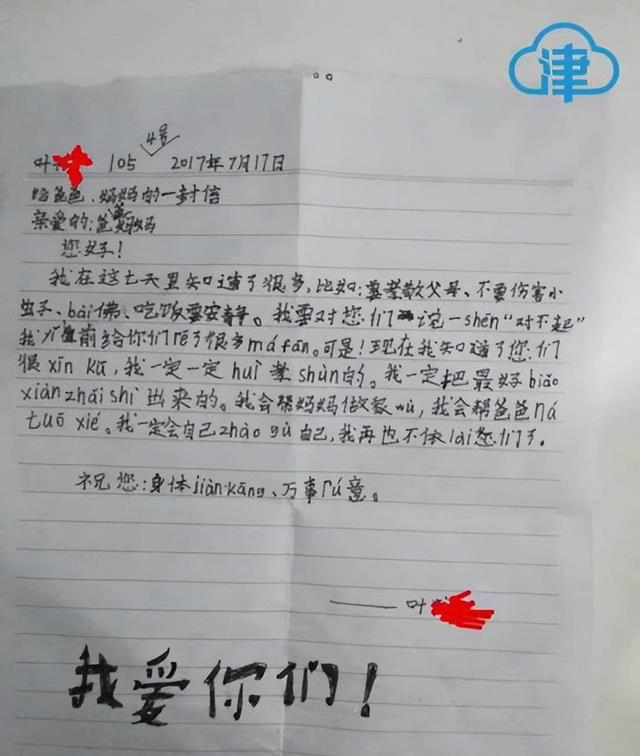 津
4号
叶 105 2017年7月17日
给爸爸、妈妈的一封信
亲爱的:爸爸妈妈
您好!
我在这七天里知道了很多,比如:要孝敬父母、不要伤害小
虫子、bài佛、吃饭要安静。我要对您们说一shēn“对不起”
我以前给你们添了很多máfan。可是!现在我知道了您们
很xīn kǔ,我一定一定huì孝shùn的。我一定把最好biǎo
xiàn zhǎi shì出来的。我会帮妈妈做家wù,我会帮爸爸ná
tuō xié。我一定会自己zhào gù自己,我再也不依lài您们了。
祝您:身体jiàn kāng、万事rú意。
——叶
我爱你们!